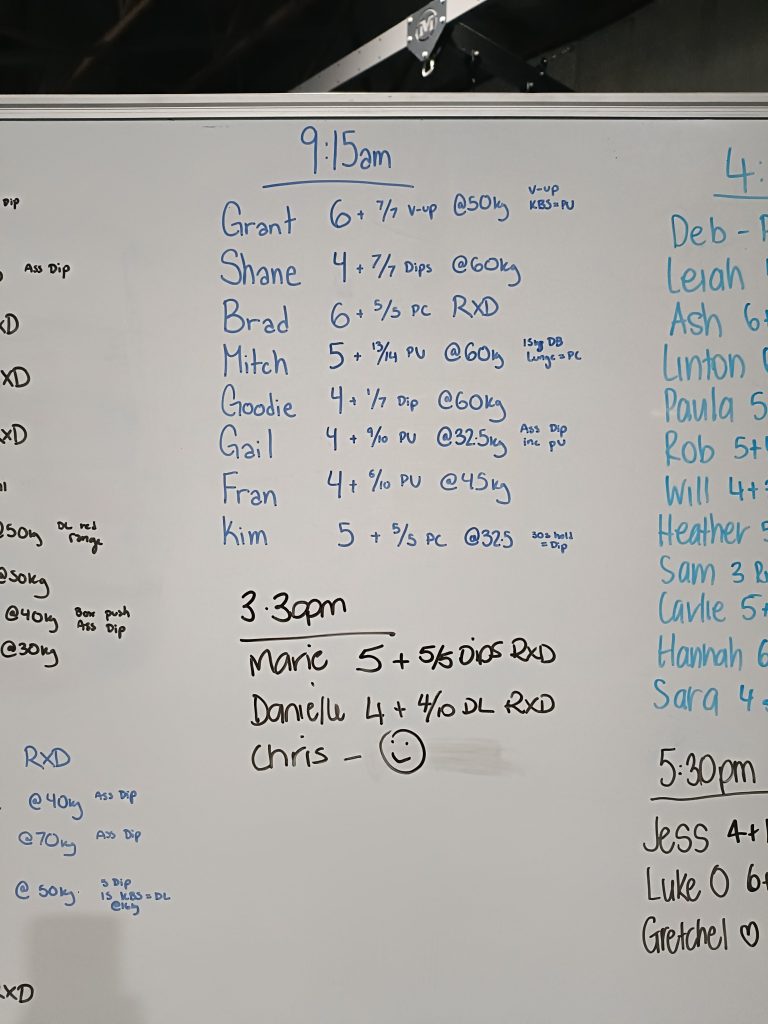 9:15am
Grant 6 + 7/7 V-up @50kg V-up KBS=PU
Shane 4 + 7/7 Dips @60kg
Brad 6 + 5/5 PC RXD
Mitch 5 + 13/14 PU @60kg 15kg DB Lunge=PC
Goodie 4 + 1/7 Dip @60kg
Gail 4 + 9/10 PU @32.5kg Ass Dip inc PU
Fran 4 + 6/10 PU @45kg
Kim 5 + 5/5 PC @32.5 30s hold = Dip
3.30pm
Marie 5 + 5/5 Dips RXD
Danielle 4 + 4/10 DL RXD
Chris - ☺
Dip
Ass Dip
XD
XD
XD
@50kg DL red range
@50kg
@40kg Box push Ass Dip
@30kg
RXD
@40kg Ass Dip
@70kg Ass Dip
@ 50kg. 5 Dip
15 KBS=DL
@16kg
RXD
4:
Deb -
Leiah
Ash 6+
Linton
Paula 5
Rob 5+
Will 4+
Heather 5
Sam 3
Carlie 5+
Hannah 6
Sara 4
5:30pm
Jess 4+
Luke O 6+
Gretchel ♡